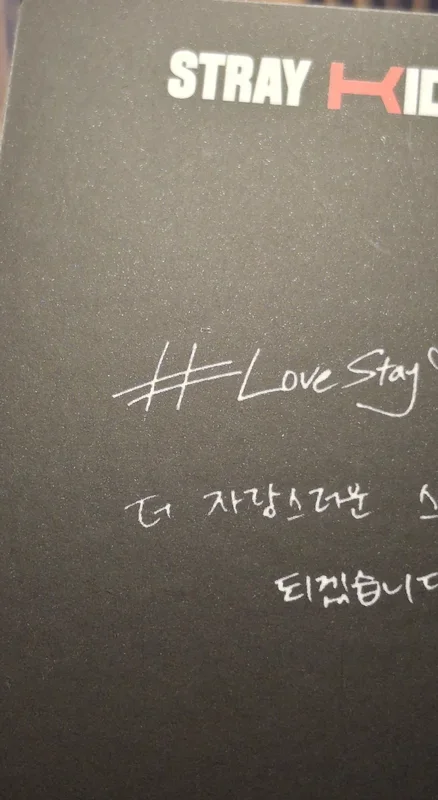 STRAY KID
#LoveStay♡
더 자랑스러운 스
되겠습니다